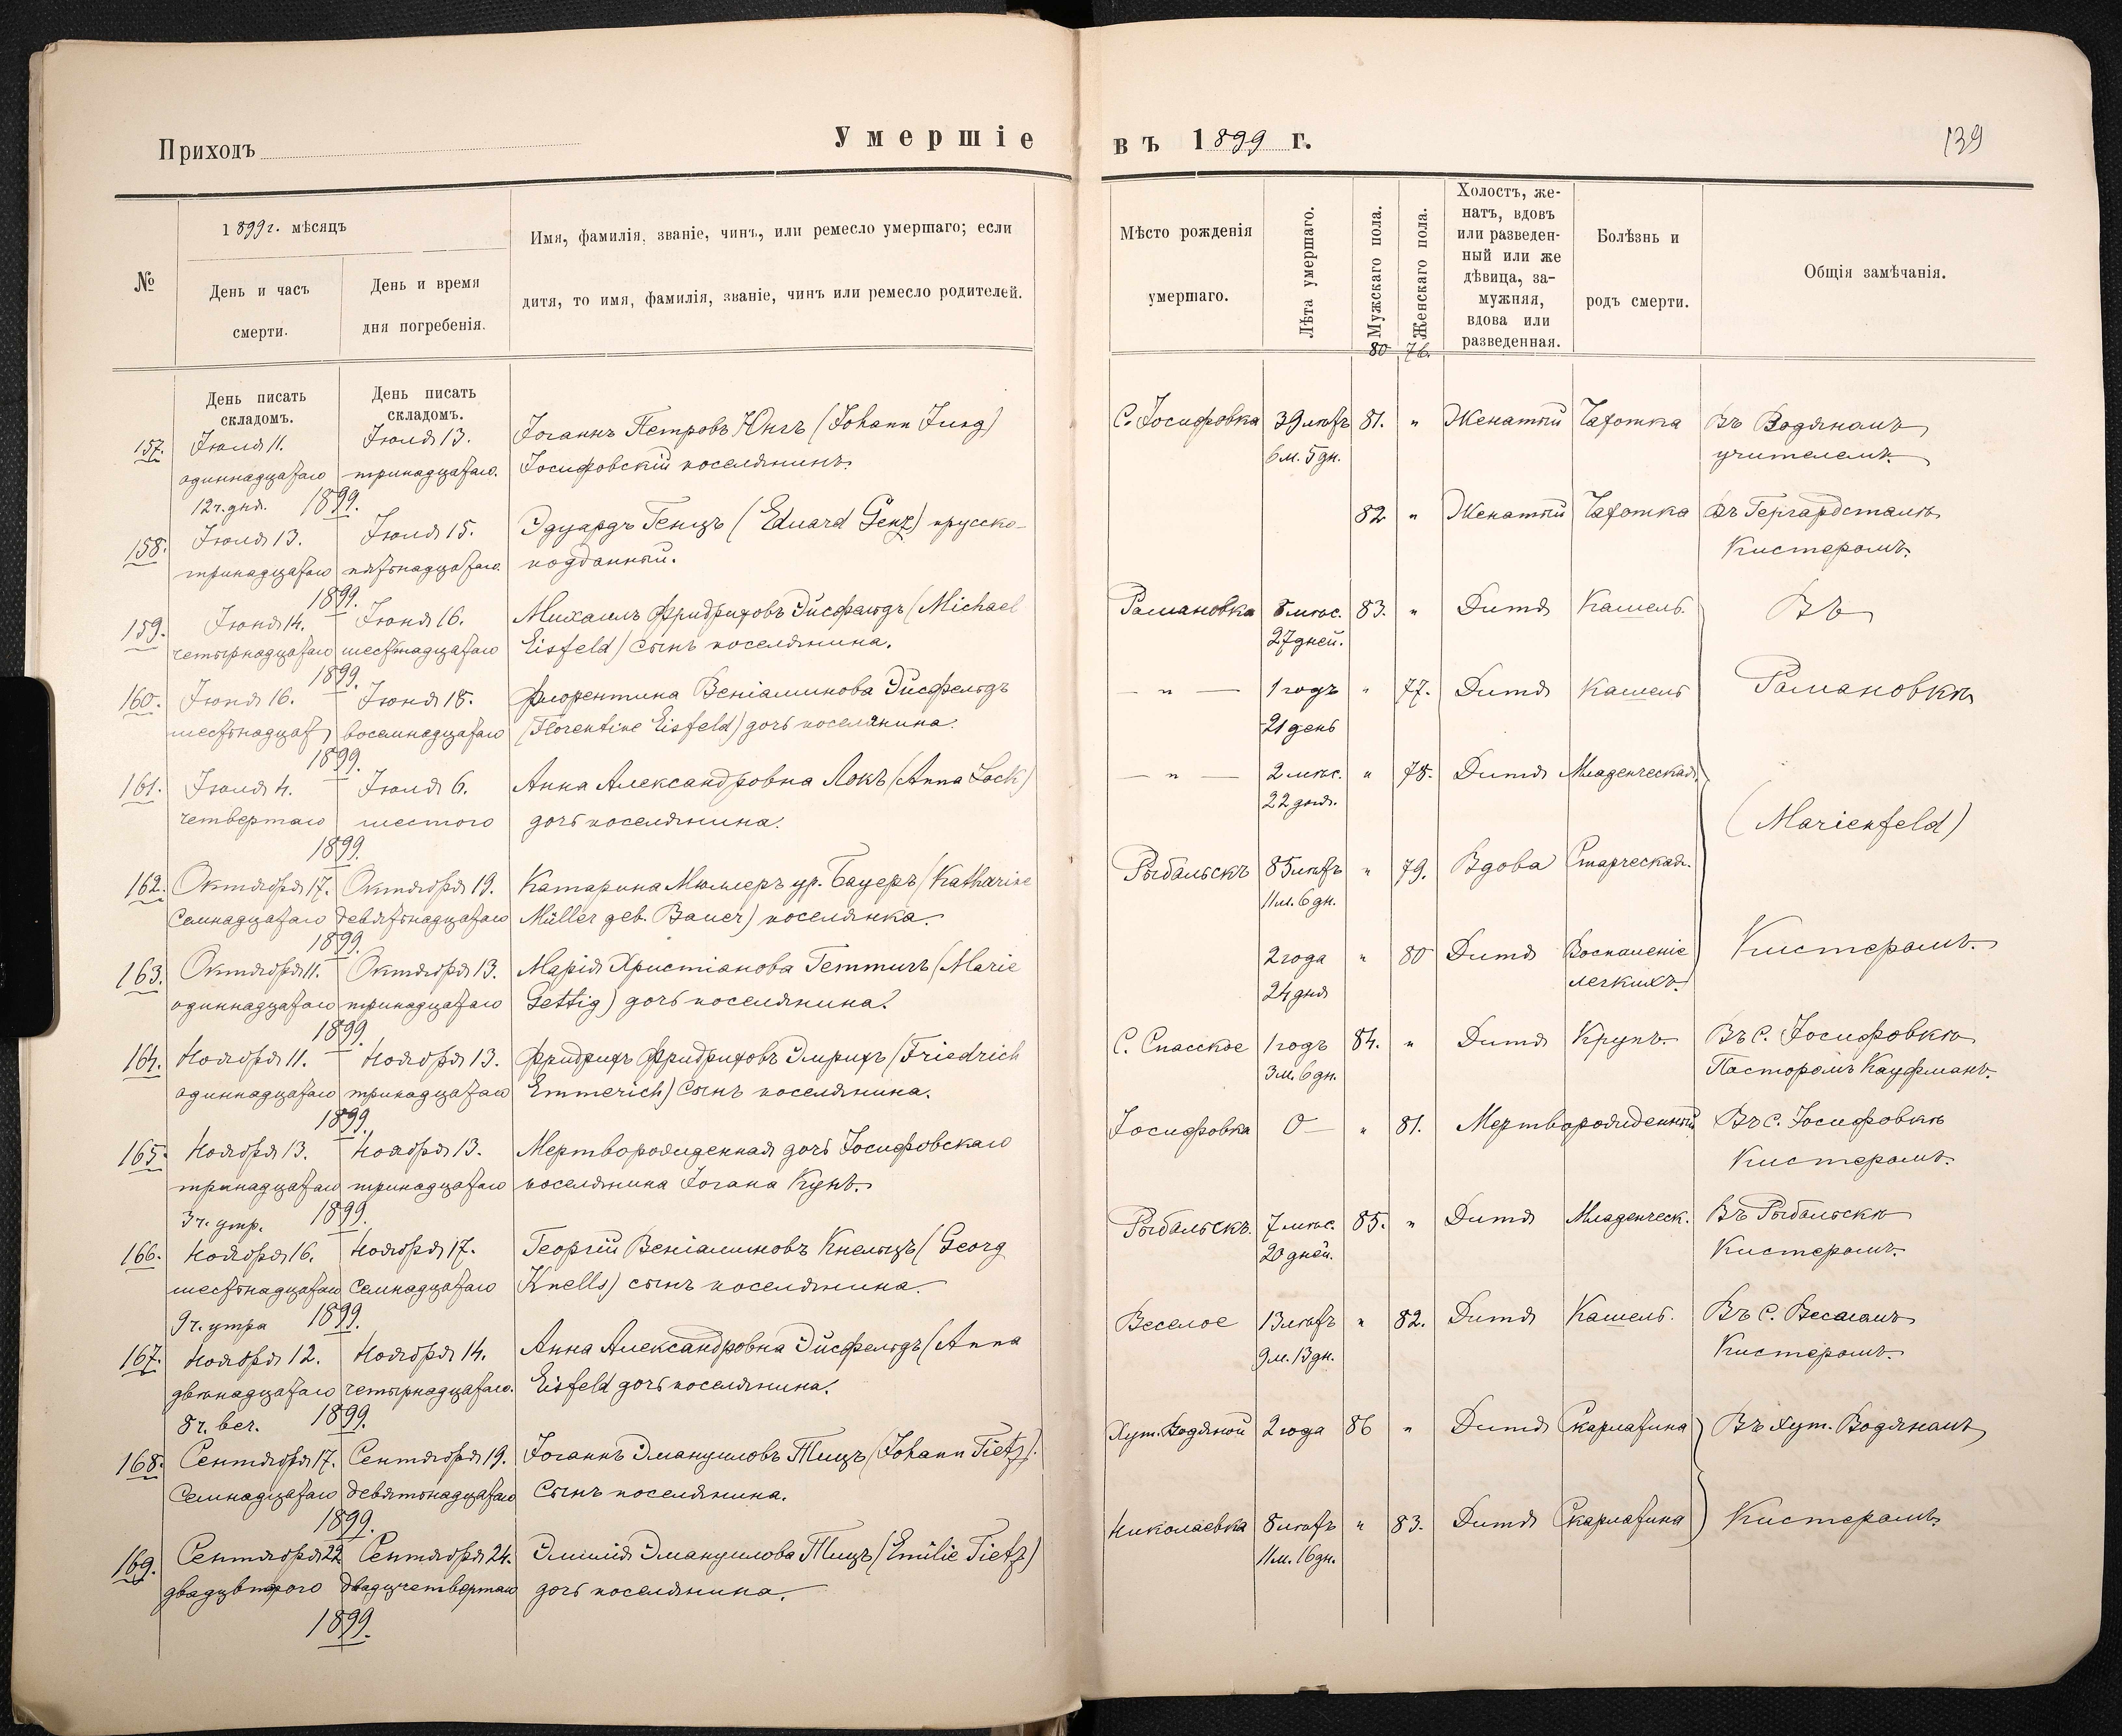 Приходъ
Умершіе
въ 1899 г.
139
№
1899 г. мѣсяцъ
День и часъ
смерти.
День и время
дня погребенія.
Имя, фамилія, званіе, чинъ, или ремесло умершаго; если
дитя, то имя, фамилія, званіе, чинъ или ремесло родителей.
Мѣсто рожденія
умершаго.
Лѣта умершаго.
Мужскаго пола.
Женскаго пола.
Холостъ, же-
натъ, вдовъ
или разведен-
ный или же
дѣвица, за-
мужняя,
вдова или
разведенная.
Болѣзнь и
родъ смерти.
Общія замѣчанія.
80 76.
День писать
складомъ.
День писать
складомъ.
157. Іюля 11. Іюля 13. Іоганнъ Петровъ Юнгъ (Johann Jung) С. Іосифовка 39 лѣтъ 81. " Женатый Чахотка Въ Водяномъ
одиннадцатаго тринадцатаго. Іосифовскій поселянинъ. 6 м. 5 дн. учителемъ.
12 ч. дня. 1899.
158. Іюля 13. Іюля 15. Эдуардъ Генцъ (Eduard Genz) прусско- 82 " Женатый Чахотка Въ Гергардсталѣ
тринадцатаго пятьнадцатаго. подданный. Кистеромъ.
1899.
159. Іюня 14. Іюня 16. Михаилъ Фридриховъ Эйсфельдъ (Michael Романовка 8 мѣс. 83. " Дитя Кашель. Въ
четырнадцатаго шестнадцатаго Eisfeld) сынъ поселянина. 27 дней.
1899.
160. Іюня 16. Іюня 18. Флорентина Веніаминова Эйсфельдъ — " — 1 годъ " 77. Дитя Кашель Романовкѣ
шестьнадцат восемнадцатаго (Florentine Eisfeld) дочь поселянина. 21 день
1899.
161. Іюля 4. Іюля 6. Анна Александровна Локъ (Anna Lock) — " — 2 мѣс. " 78. Дитя Младенческая.
четвертаго шестого дочь поселянина. 22 дня. (Marienfeld)
1899.
162. Октября 17. Октября 19. Катарина Мюллеръ ур. Бауеръ (Katharine Рыбальскъ 85 лѣтъ " 79. Вдова Старческая.
Семнадцатаго девятьнадцатаго Müller geb. Bauer) поселянка. 11 м. 6 дн.
1899.
163. Октября 11. Октября 13. Марія Христіанова Геттигъ (Marie 2 года " 80 Дитя Воспаленіе Кистеромъ.
одиннадцатаго тринадцатаго Gettig) дочь поселянина. 24 дня легкихъ.
1899.
164. Ноября 11. Ноября 13. Фридрихъ Фридриховъ Эмрихъ (Friedrich С. Спасское 1 годъ 84. " Дитя Крупъ. Въ С. Іосифовкѣ
одиннадцатаго тринадцатаго Emmerich) Сынъ поселянина. 3 м. 6 дн. Пасторомъ Кауфманъ.
1899.
165. Ноября 13. Ноября 13. Мертворожденная дочь Іосифовскаго Іосифовка 0— " 81. Мертворожденный Въ С. Іосифовкѣ
тринадцатаго тринадцатаго поселянина Іогана Кунъ. Кистеромъ.
3 ч. утр. 1899.
166. Ноября 16. Ноября 17. Георгій Веніаминовъ Кнельцъ (Georg Рыбальскъ. 7 мѣс. 85. " Дитя Младенческ. Въ Рыбальскѣ
шестьнадцатаго Семнадцатаго Knells) сынъ поселянина. 20 дней. Кистеромъ.
9 ч. утра 1899.
167. Ноября 12. Ноября 14. Анна Александровна Эйсфельдъ (Anna Веселое 13 лѣтъ " 82. Дитя Кашель. Въ С. Веселомъ
двѣнадцатаго четырнадцатаго. Eisfeld дочь поселянина. 9 м. 13 дн. Кистеромъ.
8 ч. веч. 1899.
168. Сентября 17. Сентября 19. Іоганнъ Эмануиловъ Тицъ (Johann Tietz). Хут. Водяной 2 года 86 " Дитя Скарлатина Въ хут. Водяномъ
Семнадцатаго девятьнадцатаго Сынъ поселянина.
1899.
169. Сентября 22 Сентября 24. Эмилія Эмануилова Тицъ (Emilie Tietz) Николаевка 8 лѣтъ " 83. Дитя Скарлатина Кистеромъ.
двадцвторого двадцчетвертаго дочь поселянина. 11 м. 16 дн.
1899.